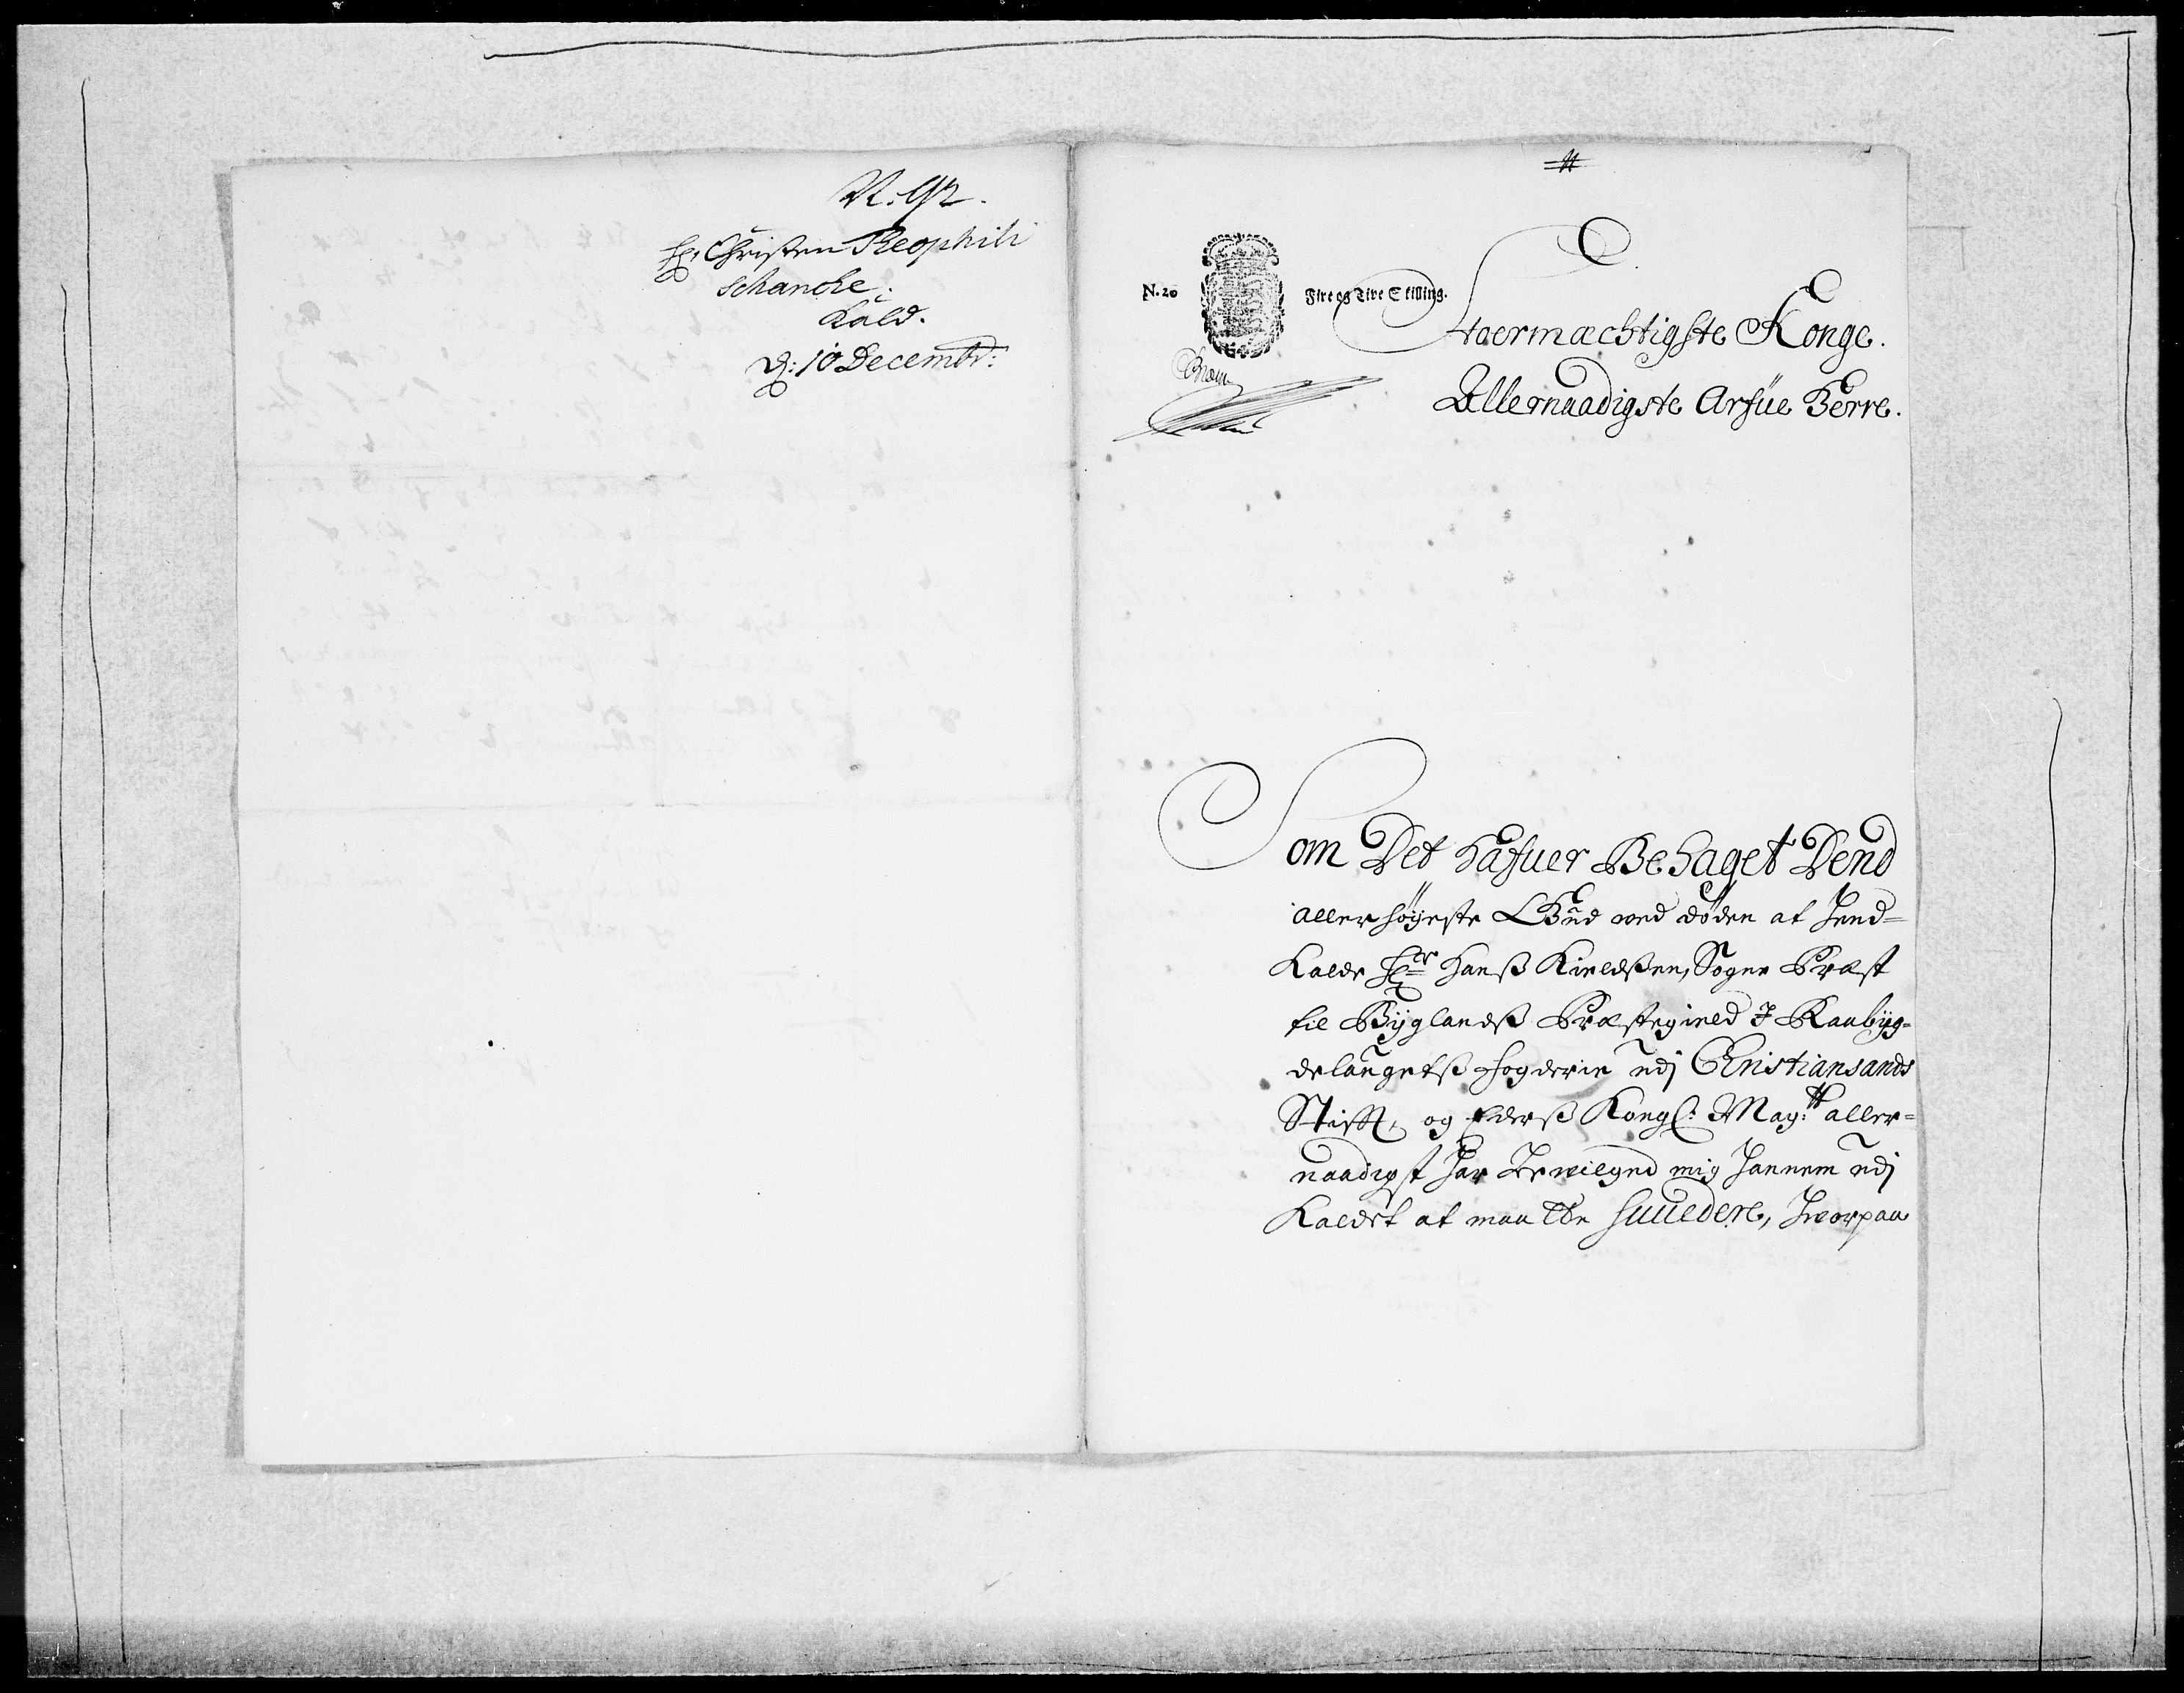 N: 92.
Hr. Christen Theophili
Schancke.
Kald.
d: 10 Decembr:
N. 20
Fire og Tive Skilling.
Stoermæchtigste Konge.
Allernaadigste Arfue Herre.
Som Det hafuer Behaget Dend
allerhøyeste Gud ved døden at hend=
Kalde Hr Hanß Kieldßen, Sogne Præst
til Byglandß Præstegield I Raabyg=
delaugetß fogderie udj Christiansands
Stifft, og Ederß Kongl: May:tt aller=
naadigst har Bevilged mig hannem udj
Kaldet at maatte succedere, hvorpaa